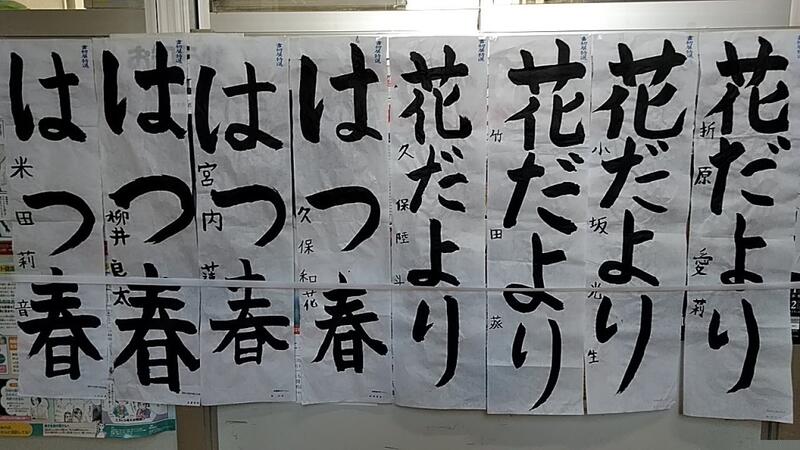 花だより
折原愛莉
花だより
小坂光生
花だより
竹田
花だより
久保陸斗
はつ春
久保和花
はつ春
宮内
はつ春
柳井良太
はつ春
米田莉音